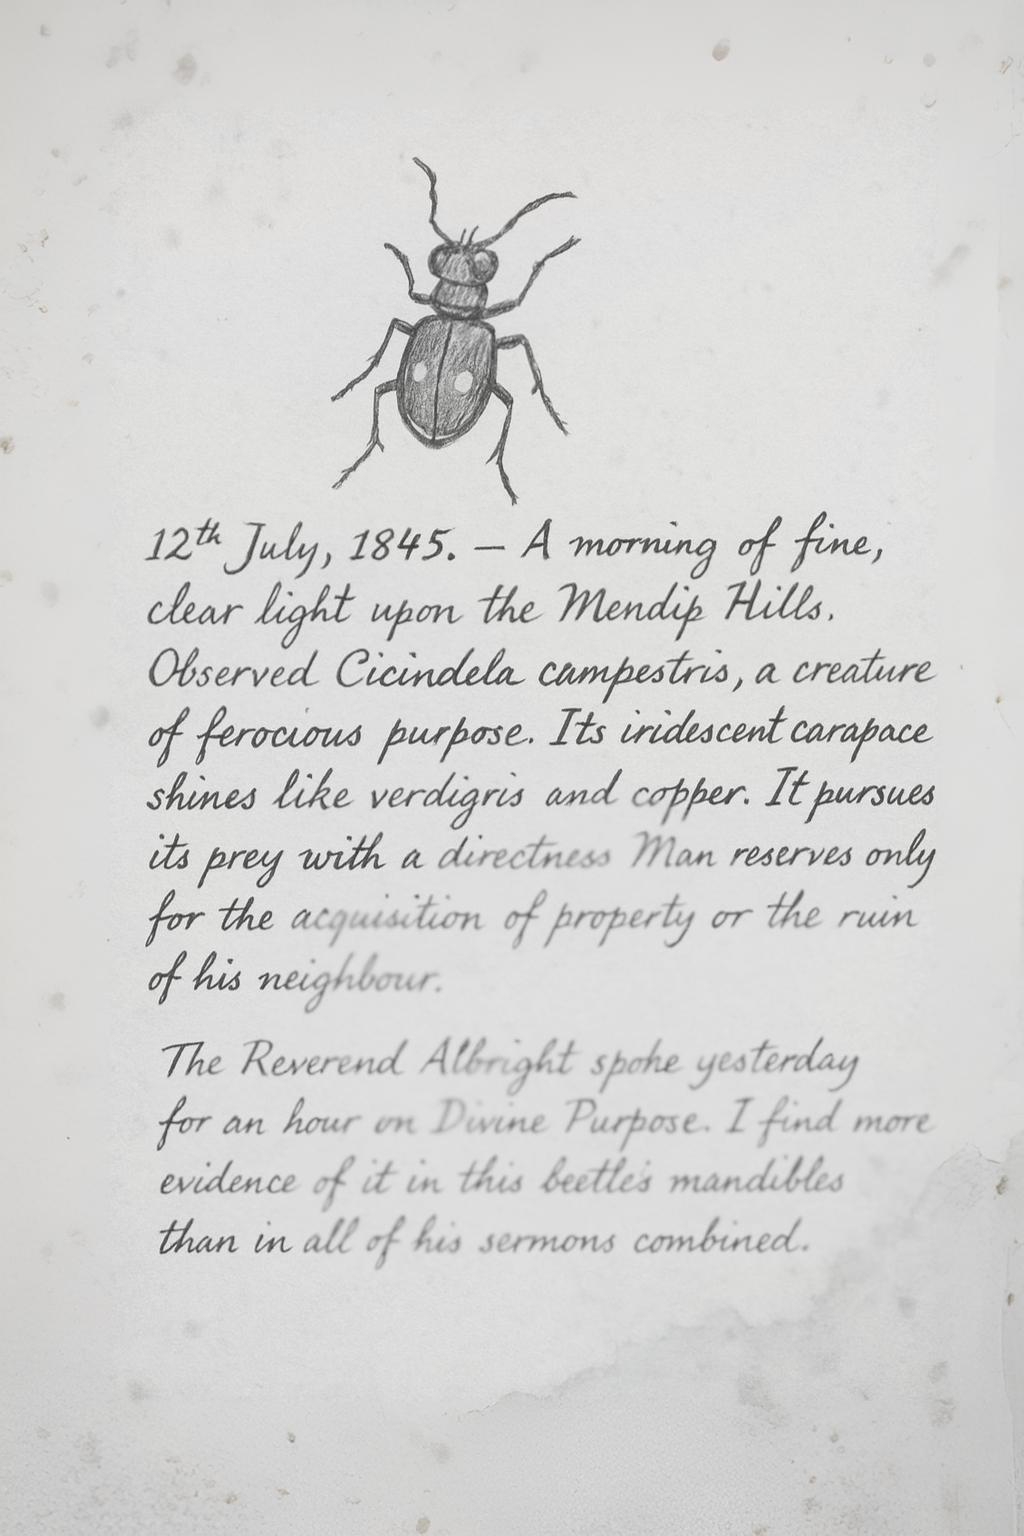 12th July, 1845. — A morning of fine,
clear light upon the Mendip Hills.
Observed Cicindela campestris, a creature
of ferocious purpose. Its iridescent carapace
shines like verdigris and copper. It pursues
its prey with a directness Man reserves only
for the acquisition of property or the ruin
of his neighbour.
The Reverend Albright spoke yesterday
for an hour on Divine Purpose. I find more
evidence of it in this beetle's mandibles
than in all of his sermons combined.